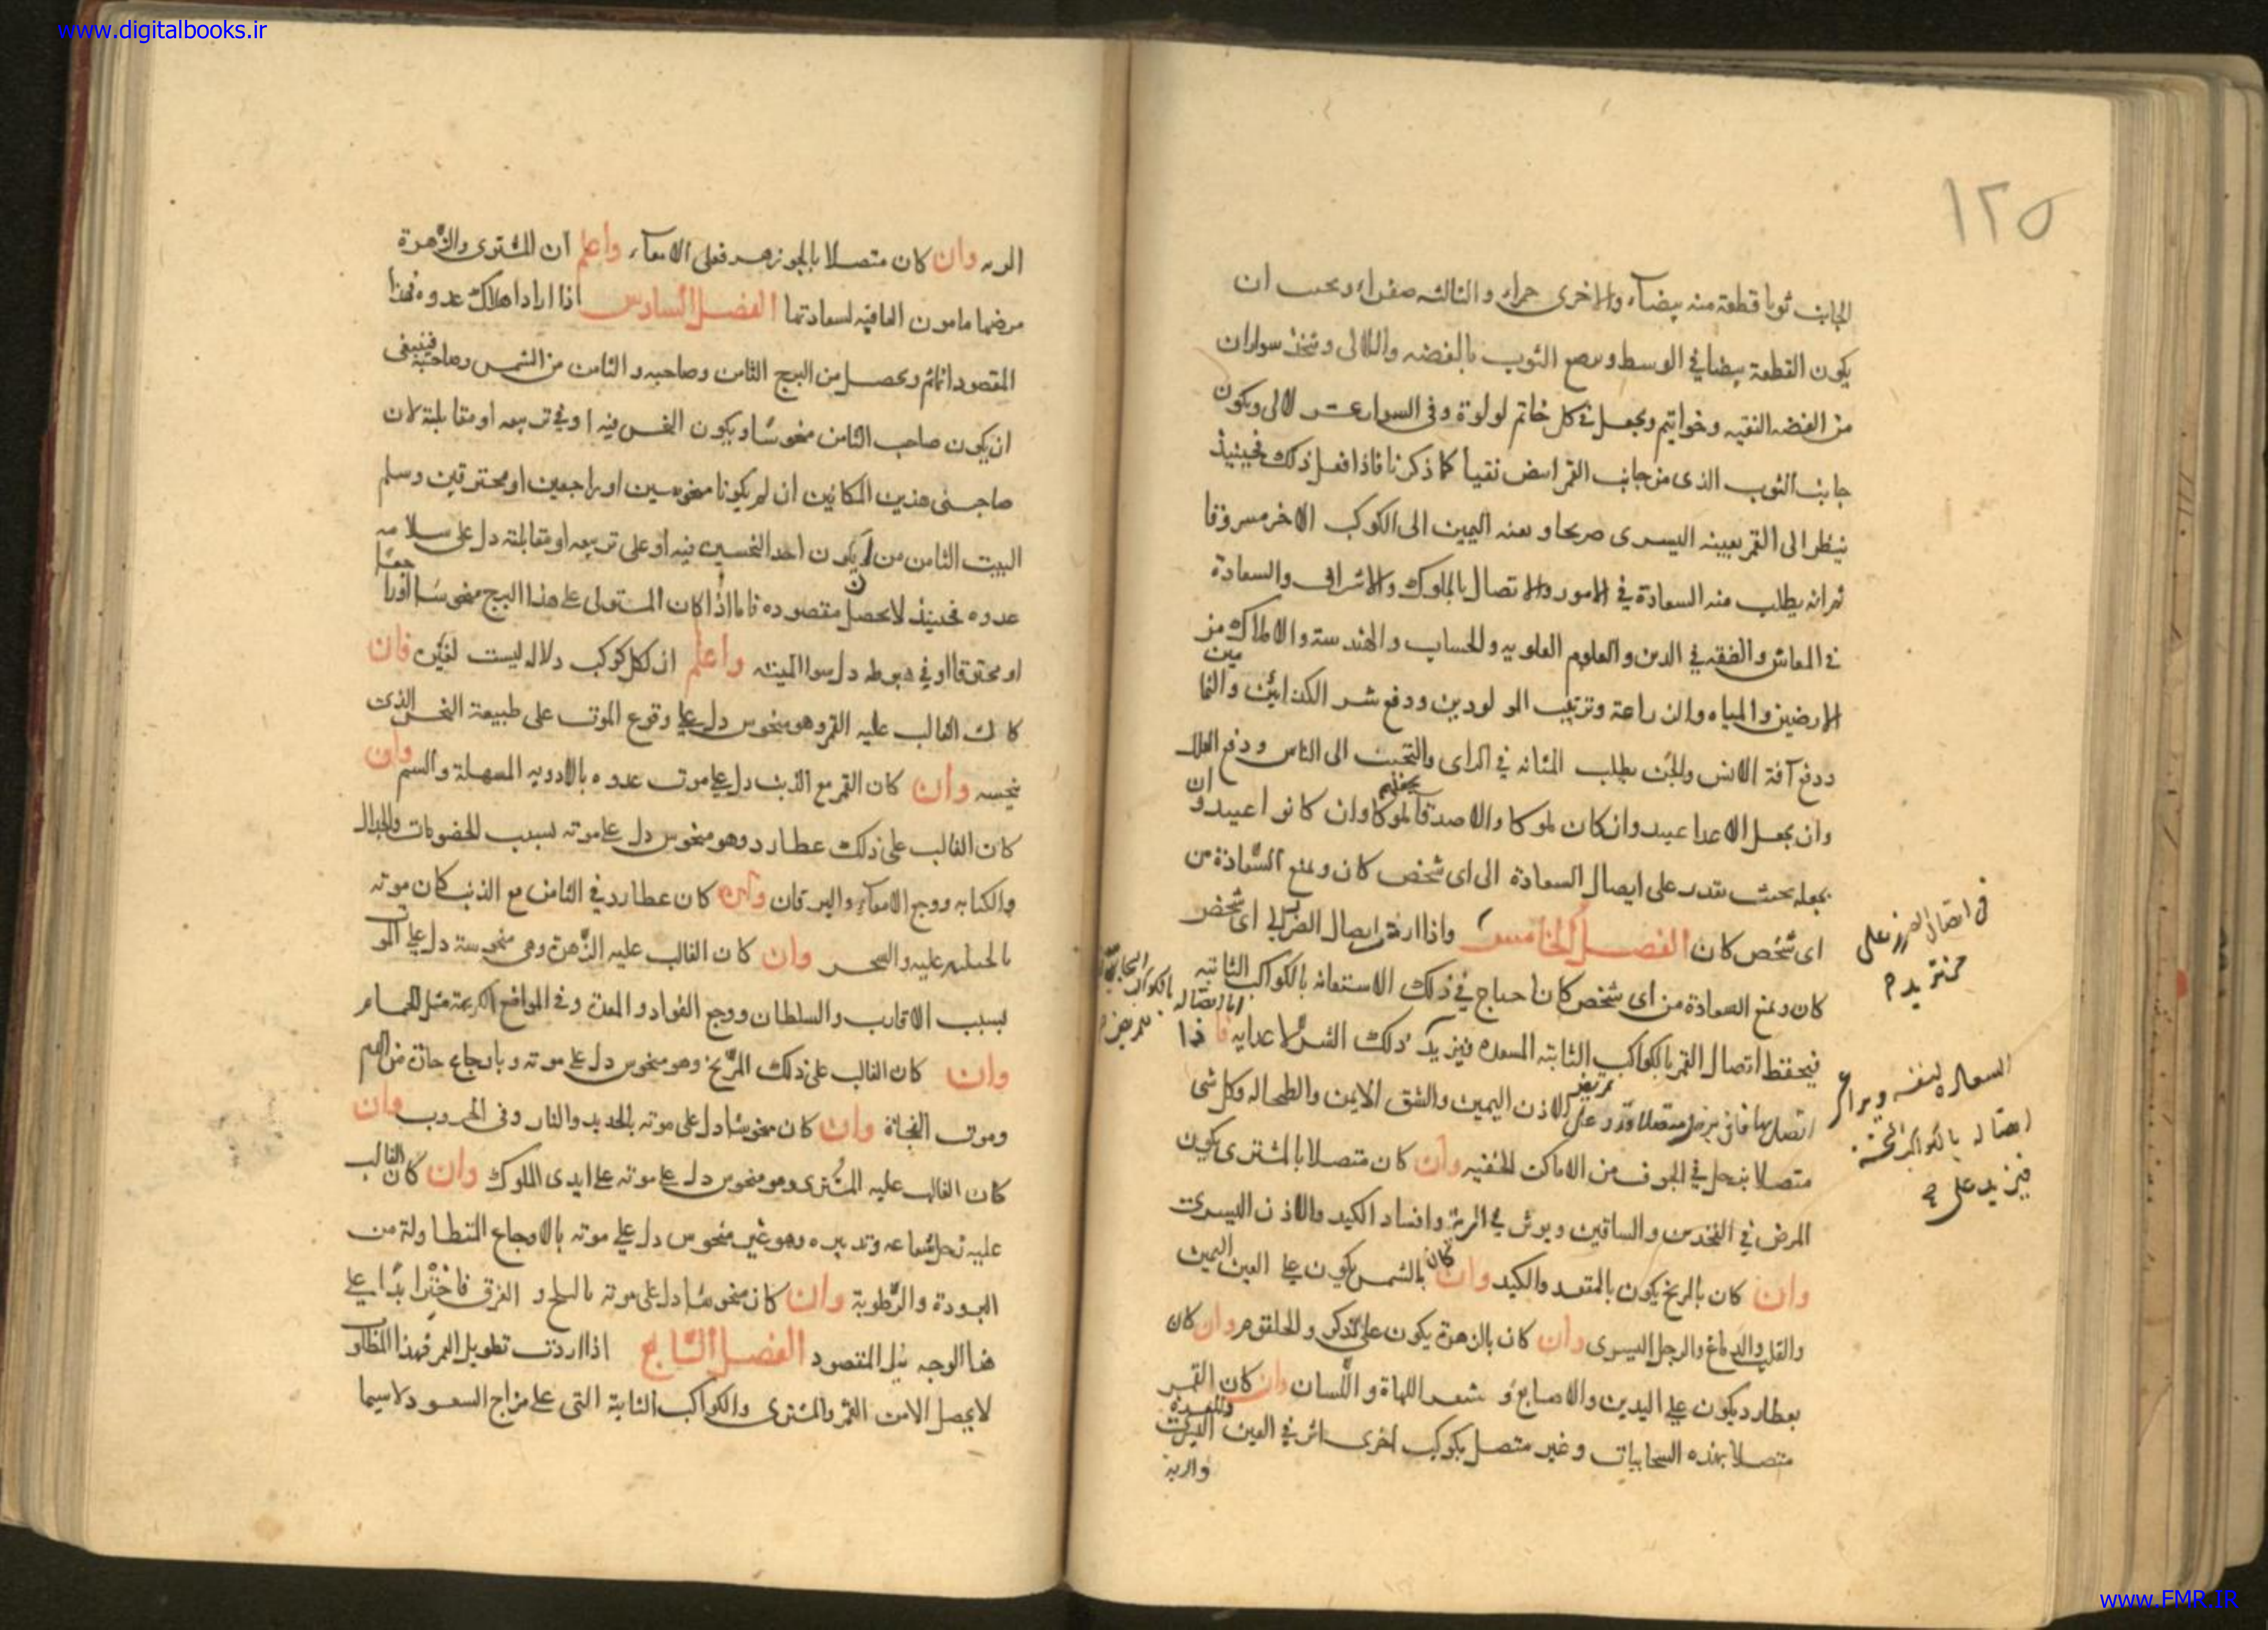 www.digitalbooks.ir
١٢٥
الجانب ثوبا قطعة منه بيضاء والاخرى حمراء والثالثه صفراء ويجب ان
يكون القطعة بيضا في الوسط و الثوب بالفضه واللالى وتتخذ سواران
من الفضه النقيه وخواتيم ويجعل في كل خاتم لولوة وفى السوار عشر لالى ويكون
جانب الثوب الذى من جانب القمر ابيض نقيا كما ذكرنا فاذا فعل ذلك فحينيذ
ينظر الى القمر بعينه اليسرى صريحا و بعينه اليمين الى الكوكب الاخر
ثم انه يطلب منه السعادة في الامور والاتصال بالملوك والاشراف والسعادة
في المعاش والفقه في الدين والعلوم العلويه والحساب والهندسة والاملاك من
الارضين والمياه والزراعة وتربيب المولودين ودفع شر الكذابين والنمامين
ودفع آفة الانس والجن يطلب المتانه في الراى والتحبب الى الناس ودفع العلل
وان يجعل الاعدا عبيد وان كان ملوكا والاصدقا يجعلهم ملوكا وان كانوا عبيد وان
يجعله بحيث يقدر على ايصال السعادة الى اى شخص كان ومنع السعادة من
اى شخص كان الفصل الخامس واذا اردت ايصال الضر الى اى شخص
كان ومنع السعادة من اى شخص كان احتاج في ذلك الاستعانه بالكواكب الثابتيه
فيحفظ اتصال القمر بالكواكب الثابته المسعده فيزيد ذلك الشر لاعدايه فاذا
اتصل بها فان مرض متصلا على الاذن اليمين والشق الايمن والطحال وكل شى
متصلا بزحل في الجوف من الاماكن الخفيه وان كان متصلا بالمشترى يكون
المرض في الفخذين والساقين ويوثر في الرية وافساد الكبد والاذن اليسرى
وان كان بالمريخ يكون بالمقعد والكبد وان كان بالشمس يكون على العين اليمين
والقلب والدماغ والرجل اليسرى وان كان بالزهرة يكون على الذكر والحلقوم وان كان
بعطارد يكون على اليدين والاصابع و شعر اللهاة واللسان والمعدة وان كان القمر
متصلا بهذه السحابيات وغير متصل بكوكب اخرى اثر في العين اليسرى
والرية
في اتصال الضرر على
من تريد م
اتصاله بالكواكب
فيزيد على
الريه وان كان متصلا بالجوزهر فعلى الامعاء واعلم ان المشترى والزهرة
مرضهما مامون العاقبه لسعادتهما الفصل السادس اذا اراد اهلاك عدوه فهذا
المقصود انما يتم ويحصل من البرج الثامن وصاحبه والثامن من الشمس وصاحبه فينبغى
ان يكون صاحب الثامن منحوسا ويكون النحس فيه او في تربيعه او مقابلته لان
صاحبى هذين المكانين ان لم يكونا منحوسين او راجعين او محترقين وسلم
البيت الثامن من ان يكون احد النحسين فيه او على تربيعه او مقابلته دل على سلامه
عدوه فحينيذ لا يحصل مقصوده فاما اذا كان المستولى على هذا البرج منحوسا او راجعا
او محترقا او في هبوطه دل سوا الميته واعلم ان لكل كوكب دلاله ليست لغيره فان
كان الغالب عليه القمر وهو منحوس دل على وقوع الموت على طبيعة النحس الذى
نحسه وان كان القمر مع الذنب دل على موت عدوه بالادويه المسهلة والسم وان
كان الغالب على ذلك عطارد وهو منحوس دل على موته بسبب الخصومات والجدال
والكتابه ووجع الامعاء واليرقان وان كان عطارد في الثامن مع الذنب كان موته
عليه والسحر وان كان الغالب عليه الزهرة وهى منحوسة دل على الموت
بسبب الاقارب والسلطان ووجع الفواد والمعدة وفى المواضع الكريهة مثل الحمام
وان كان الغالب على ذلك المريخ وهو منحوس دل على موته وباوجاع حادة من الدم
وموت الفجاة وان كان منحوسا دل على موته بالحديد والنار وفى الحروب وان
كان الغالب عليه المشترى وهو منحوس دل على موته على ايدى الملوك وان كان الغالب
عليه زحل بشعاعه وتدبيره وهو غير منحوس دل على موته بالاوجاع المتطاولة من
البرودة والرطوبة وان كان منحوسا دل على موته و الغرق فاختر ابدا على
هذا الوجه نيل المقصود الفصل السابع اذا اردت تطويل العمر فهذا المطلوب
لا يحصل الا من القمر والمشترى والكواكب الثابتة التى على مزاج السعود لا سيما
www.FMR.IR